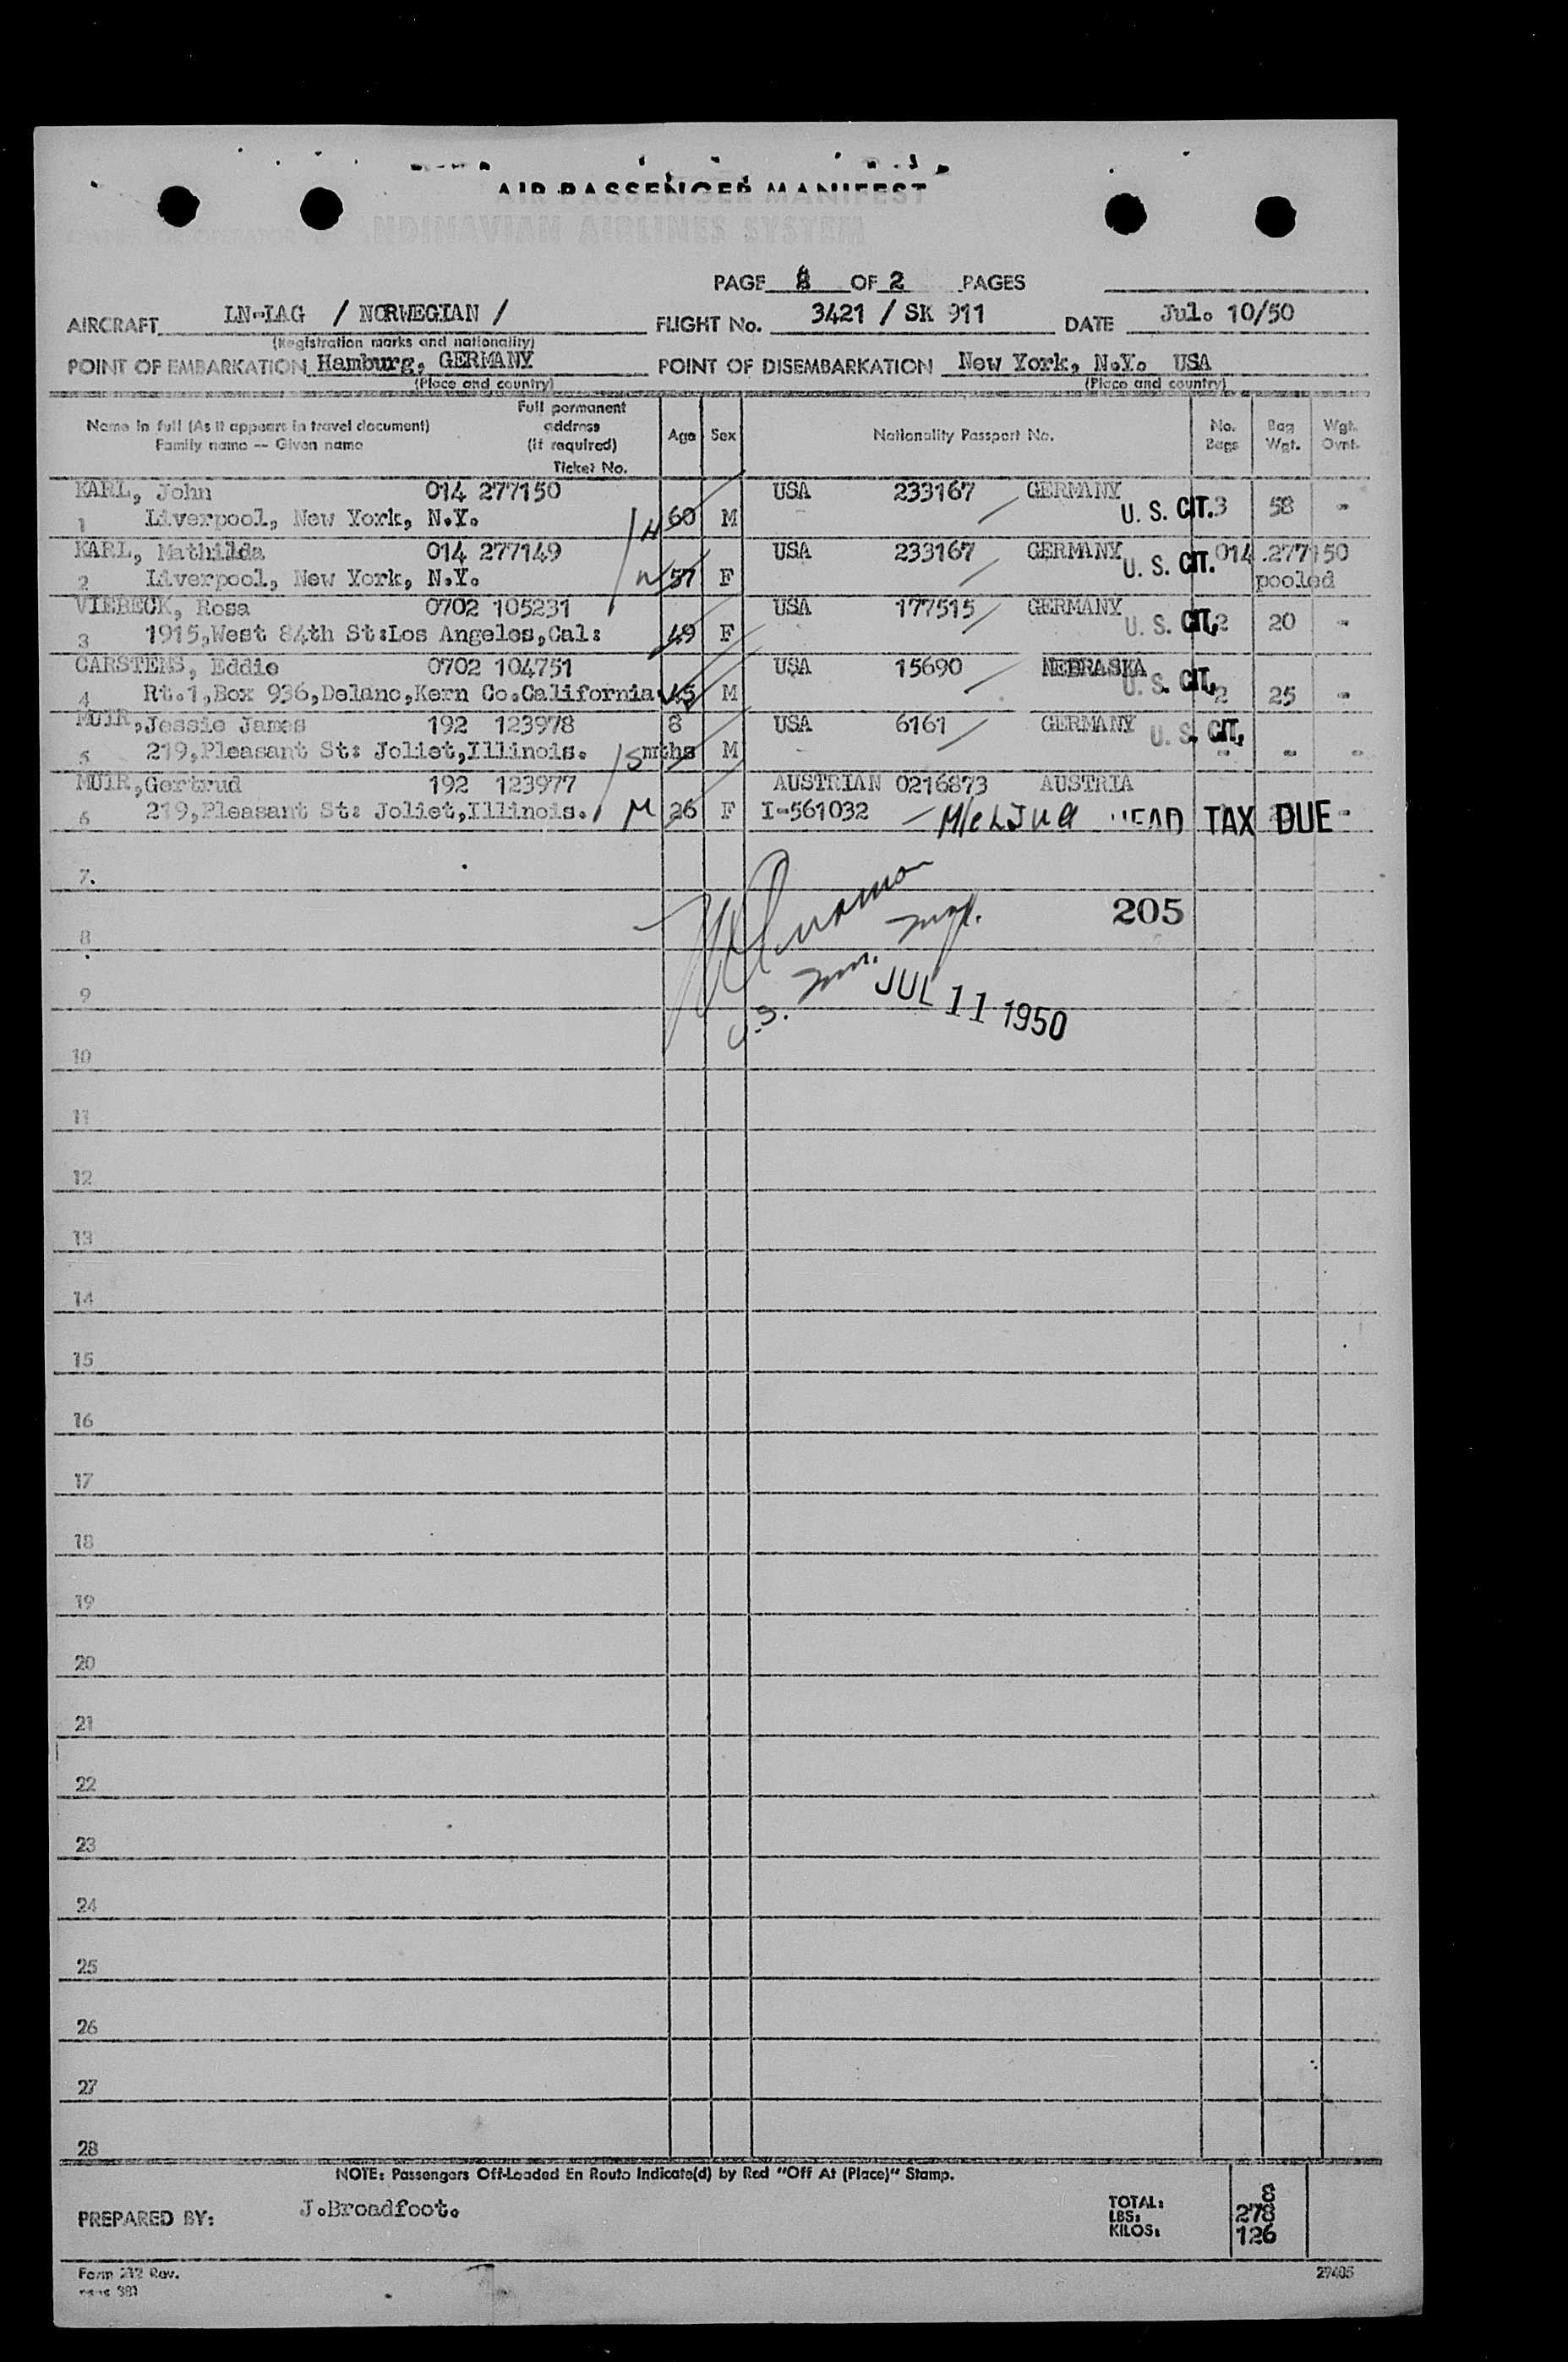 AIR PASSENGER MANIFEST
OWNER OR OPERATOR SCANDINAVIAN AIRLINES SYSTEM
PAGE OF 2 PAGES
AIRCRAFT LN-LAG / NORWEGIAN / FLIGHT No. 3421 / SK 911 DATE Jul. 10/50
(Registration marks and nationality)
POINT OF EMBARKATION Hamburg, GERMANY POINT OF DISEMBARKATION New York, N.Y. USA
(Place and country) (Place and country)
Name in full (As it appears in travel document) Family name -- Given name Full permanent address (if required) Ticket No. Age Sex Nationality Passport No. No. Bags Bag Wgt. Wgt. Ovnt.
KARL, John 014 277150 USA 233167 GERMANY
1 Liverpool, New York, N.Y. 60 M U. S. CIT. 3 58 -
KARL, Mathilda 014 277149 USA 233167 GERMANY U. S. CIT. 014 277150
2 Liverpool, New York, N.Y. 57 F pooled
VIEBECK, Rosa 0702 105231 USA 177515 GERMANY
3 1915,West 84th St:Los Angeles,Cal: 49 F U. S. CIT. 2 20 -
CARSTENS, Eddie 0702 104751 USA 15690 NEBRASKA
4 Rt.1,Box 936,Delano,Kern Co.California 45 M U. S. CIT. 2 25 -
MUIR,Jessie James 192 123978 8 USA 6161 GERMANY U. S. CIT.
5 219,Pleasant St: Joliet,Illinois. mths M - - -
MUIR,Gertrud 192 123977 AUSTRIAN 0216873 AUSTRIA
6 219,Pleasant St: Joliet,Illinois. M 26 F I-561032 HEAD TAX DUE -
7.
8 205
9 U.S. Imm. Insp. JUL 11 1950
10
11
12
13
14
15
16
17
18
19
20
21
22
23
24
25
26
27
28
NOTE: Passengers Off-Loaded En Route Indicate(d) by Red "Off At (Place)" Stamp.
PREPARED BY: J.Broadfoot.
TOTAL: 8
LBS: 278
KILOS: 126
Form 212 Rev. 27405